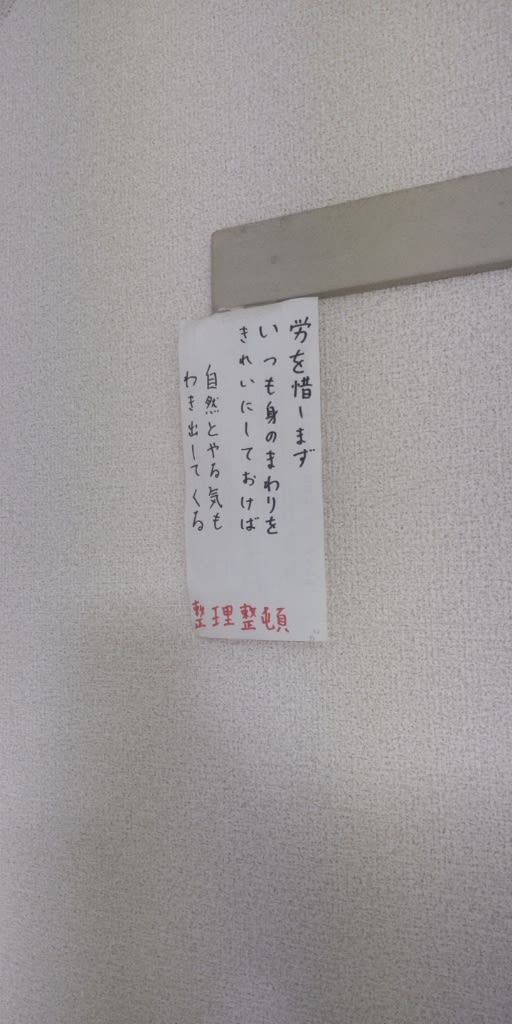 労を惜しまず
いつも身のまわりを
きれいにしておけば
自然とやる気も
わき出してくる
整理整頓